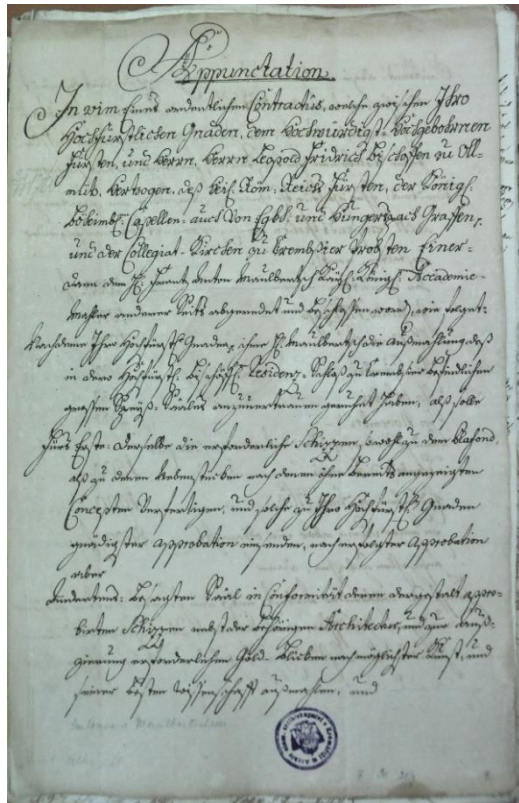 Appunctation.
In vim eines ordentlichen Contractus, welche zwischen Ihro
Hochfürstlichen Gnaden, dem Hochwürdigst-Hochgebohrnen
Fürsten, und Herrn, Herrn Leopold Fridrich Bischoffen zu Oll-
mütz, Hertzogen, deß Heil: Röm: Reichs Fürsten, der Königl:
Boheimb: Capellen- auch von Egkh, und Hungerspach Graffen,
und der Collegiat-Kirchen zu Crembsier Probsten Einer-
dann dem H: Frantz Anton Maulbertsch Kayl: Königl: Academie-
Mahler anderer Seits abgeredet und beschlossen worden, wie folget:
Nachdeme Ihro Hochfürstl: Gnaden, ihme H: Maulbertsch die Außmahlung deß
in dero Hochfürstl: Bischöffl: Residenz-Schloß zu Crembsier befindlichen
grossen Saals anzuvertrauen geruhet haben, alß solle
Fürs Erste: Derselbe die erforderliche Schizzen, sowohl zu dem Plafond,
alß zu denen nach denen ihme bereits angezeigten
Concepten verfertigen, und solche zu Ihro Hochfürstl: Gnaden
gnädigster Approbation einsenden, nach erfolgter Approbation
aber
Andertens: Besagten Saal in Conformität denen dergestalt appro-
birten Schizzen nebst der behörigen Architectur, und zur
erforderlichen Gold-Blicken nach möglichster Kunst, und
seiner besten Wissenschafft außmahlen, und